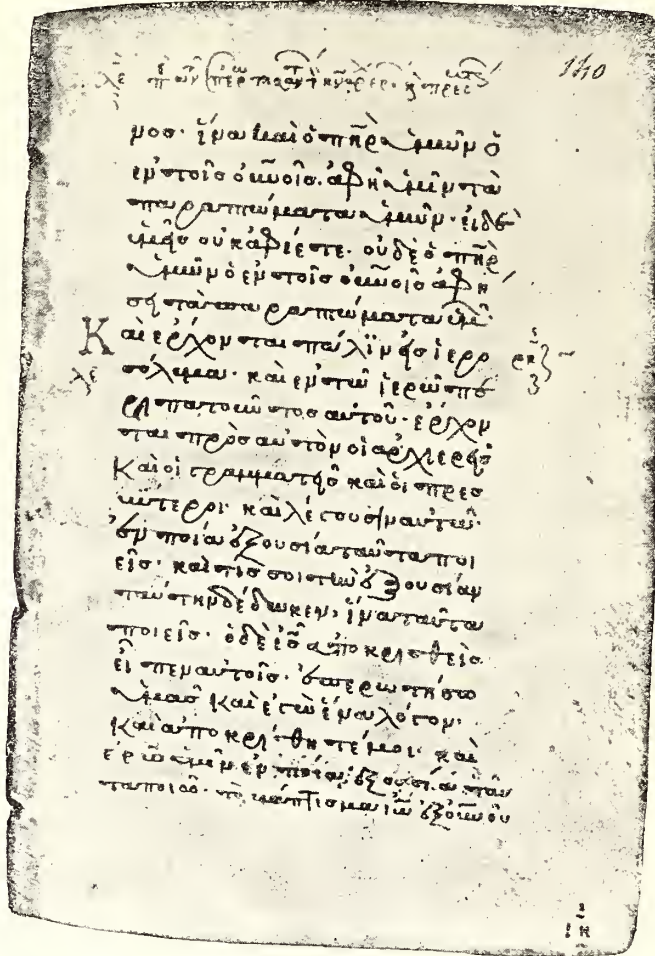 140
μος· ἵνα καὶ ὁ πη̅ρ ὑμῶν ὁ
ἐν τοῖς οὐν̅οις· ἀφῆ ὑμῖν τὰ
παραπτώματα ὑμῶν· εἰ δὲ
ὑμεῖς οὐκ ἀφίετε· οὐδὲ ὁ πη̅ρ
ὑμῶν ὁ ἐν τοῖς οὐν̅οις ἀφή
σει τὰ παραπτώματα ὑμῶν·
Καὶ ἔρχονται πάλιν εἰς ἱερο
σόλυμα· καὶ ἐν τῶ ἱερῶ πε
ριπατοῦντος αὐτοῦ· ἔρχον
ται πρὸς αὐτὸν οἱ ἀρχιερεῖς
καὶ οἱ γραμματεῖς καὶ οἱ πρεσ
βύτεροι· καὶ λέγουσιν αὐτῶ·
ἐν ποία ἐξουσία ταῦτα ποι
εῖς· καὶ τίς σοι τὴν ἐξουσίαν
ταύτην δέδωκεν, ἵνα ταῦτα
ποιεῖς· ὁ δὲ ι̅ς̅ ἀποκριθεὶς
εἶπεν αὐτοῖς· ἐπερωτήσω
ὑμᾶς καὶ ἐγὼ ἕνα λόγον·
καὶ ἀποκρίθητέ μοι· καὶ
ἐρῶ ὑμῖν ἐν ποία ἐξουσία ταῦ
τα ποιῶ· τὸ βάπτισμα ἰω̅ ἐξ οὐν̅ου